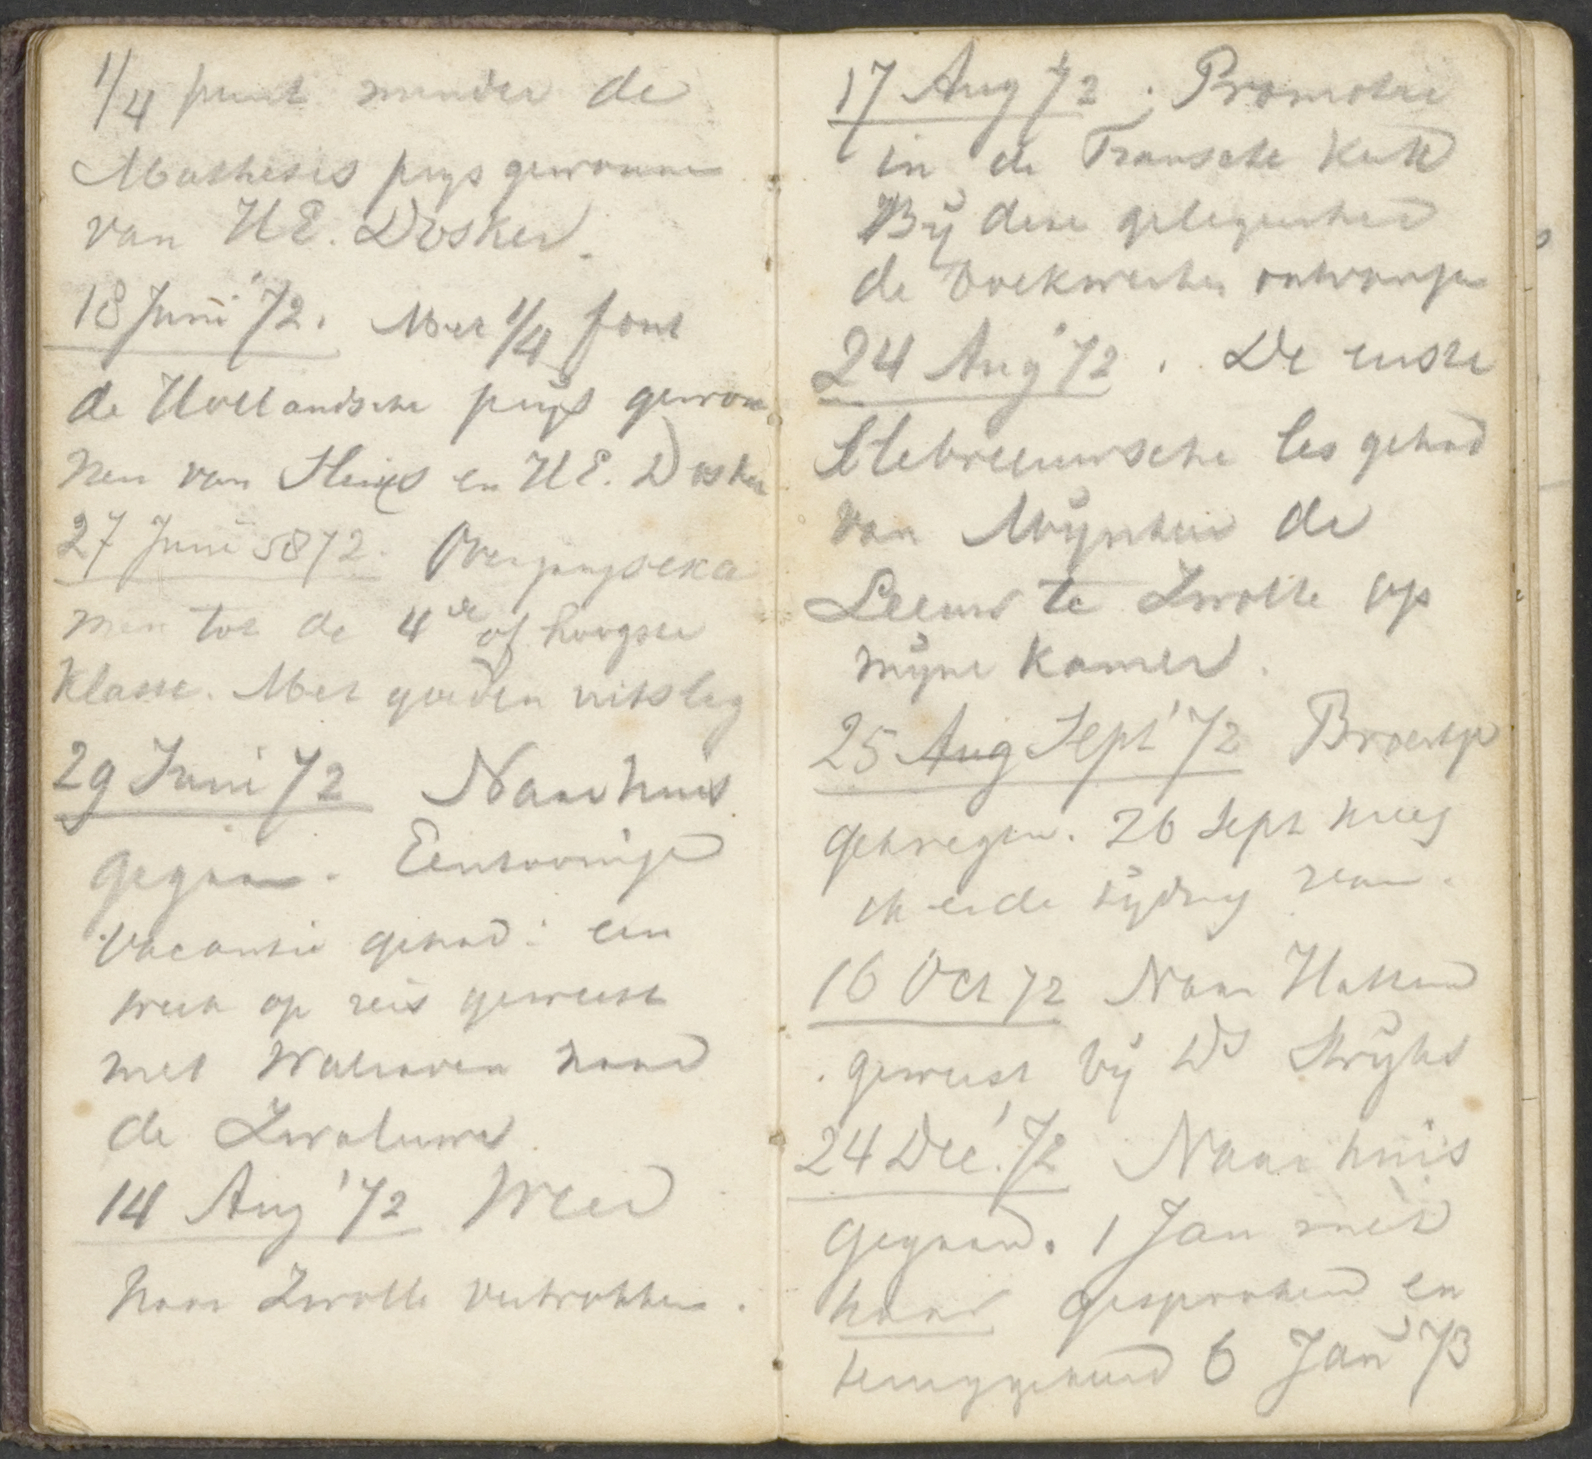 1/4 punt minder de
Mathesis prys gewonnen
van H E. Dosker.
18 Juni '72. Met 1/4 fout
de Hollandsche prijs gewon-
nen van Heijs en H E. Dosker
27 Juni 1872. Overgangsexa
men tot de 4de of hoogste
Klasse. Met goeden uitslag
29 Juni 72 Naar huis
gegaan. Eentoonige
Vacantie gehad: een
week op reis geweest
met Walraven naar
de Zwaluwe.
14 Aug '72 Weer
naar Zwolle vertrokken.
17 Aug 72. Promotie
in de Fransche Kerk
Bij deze gelegenheid
de boekwerken ontvangen
24 Aug '72. De eerste
Hebreeuwsche les gehad
van Mijnheer de
Leeuw te Zwolle op
mijne kamer.
25 Aug Sept '72 Broertje
gekregen. 26 Sept kreeg
ik eerste tijding van.
16 Oct 72 Naar Hattem
geweest bij Ds Strijks
24 Dec. '72 Naar huis
gegaan. 1 Jan met
haar gesproken en
teruggekeerd 6 Jan '73